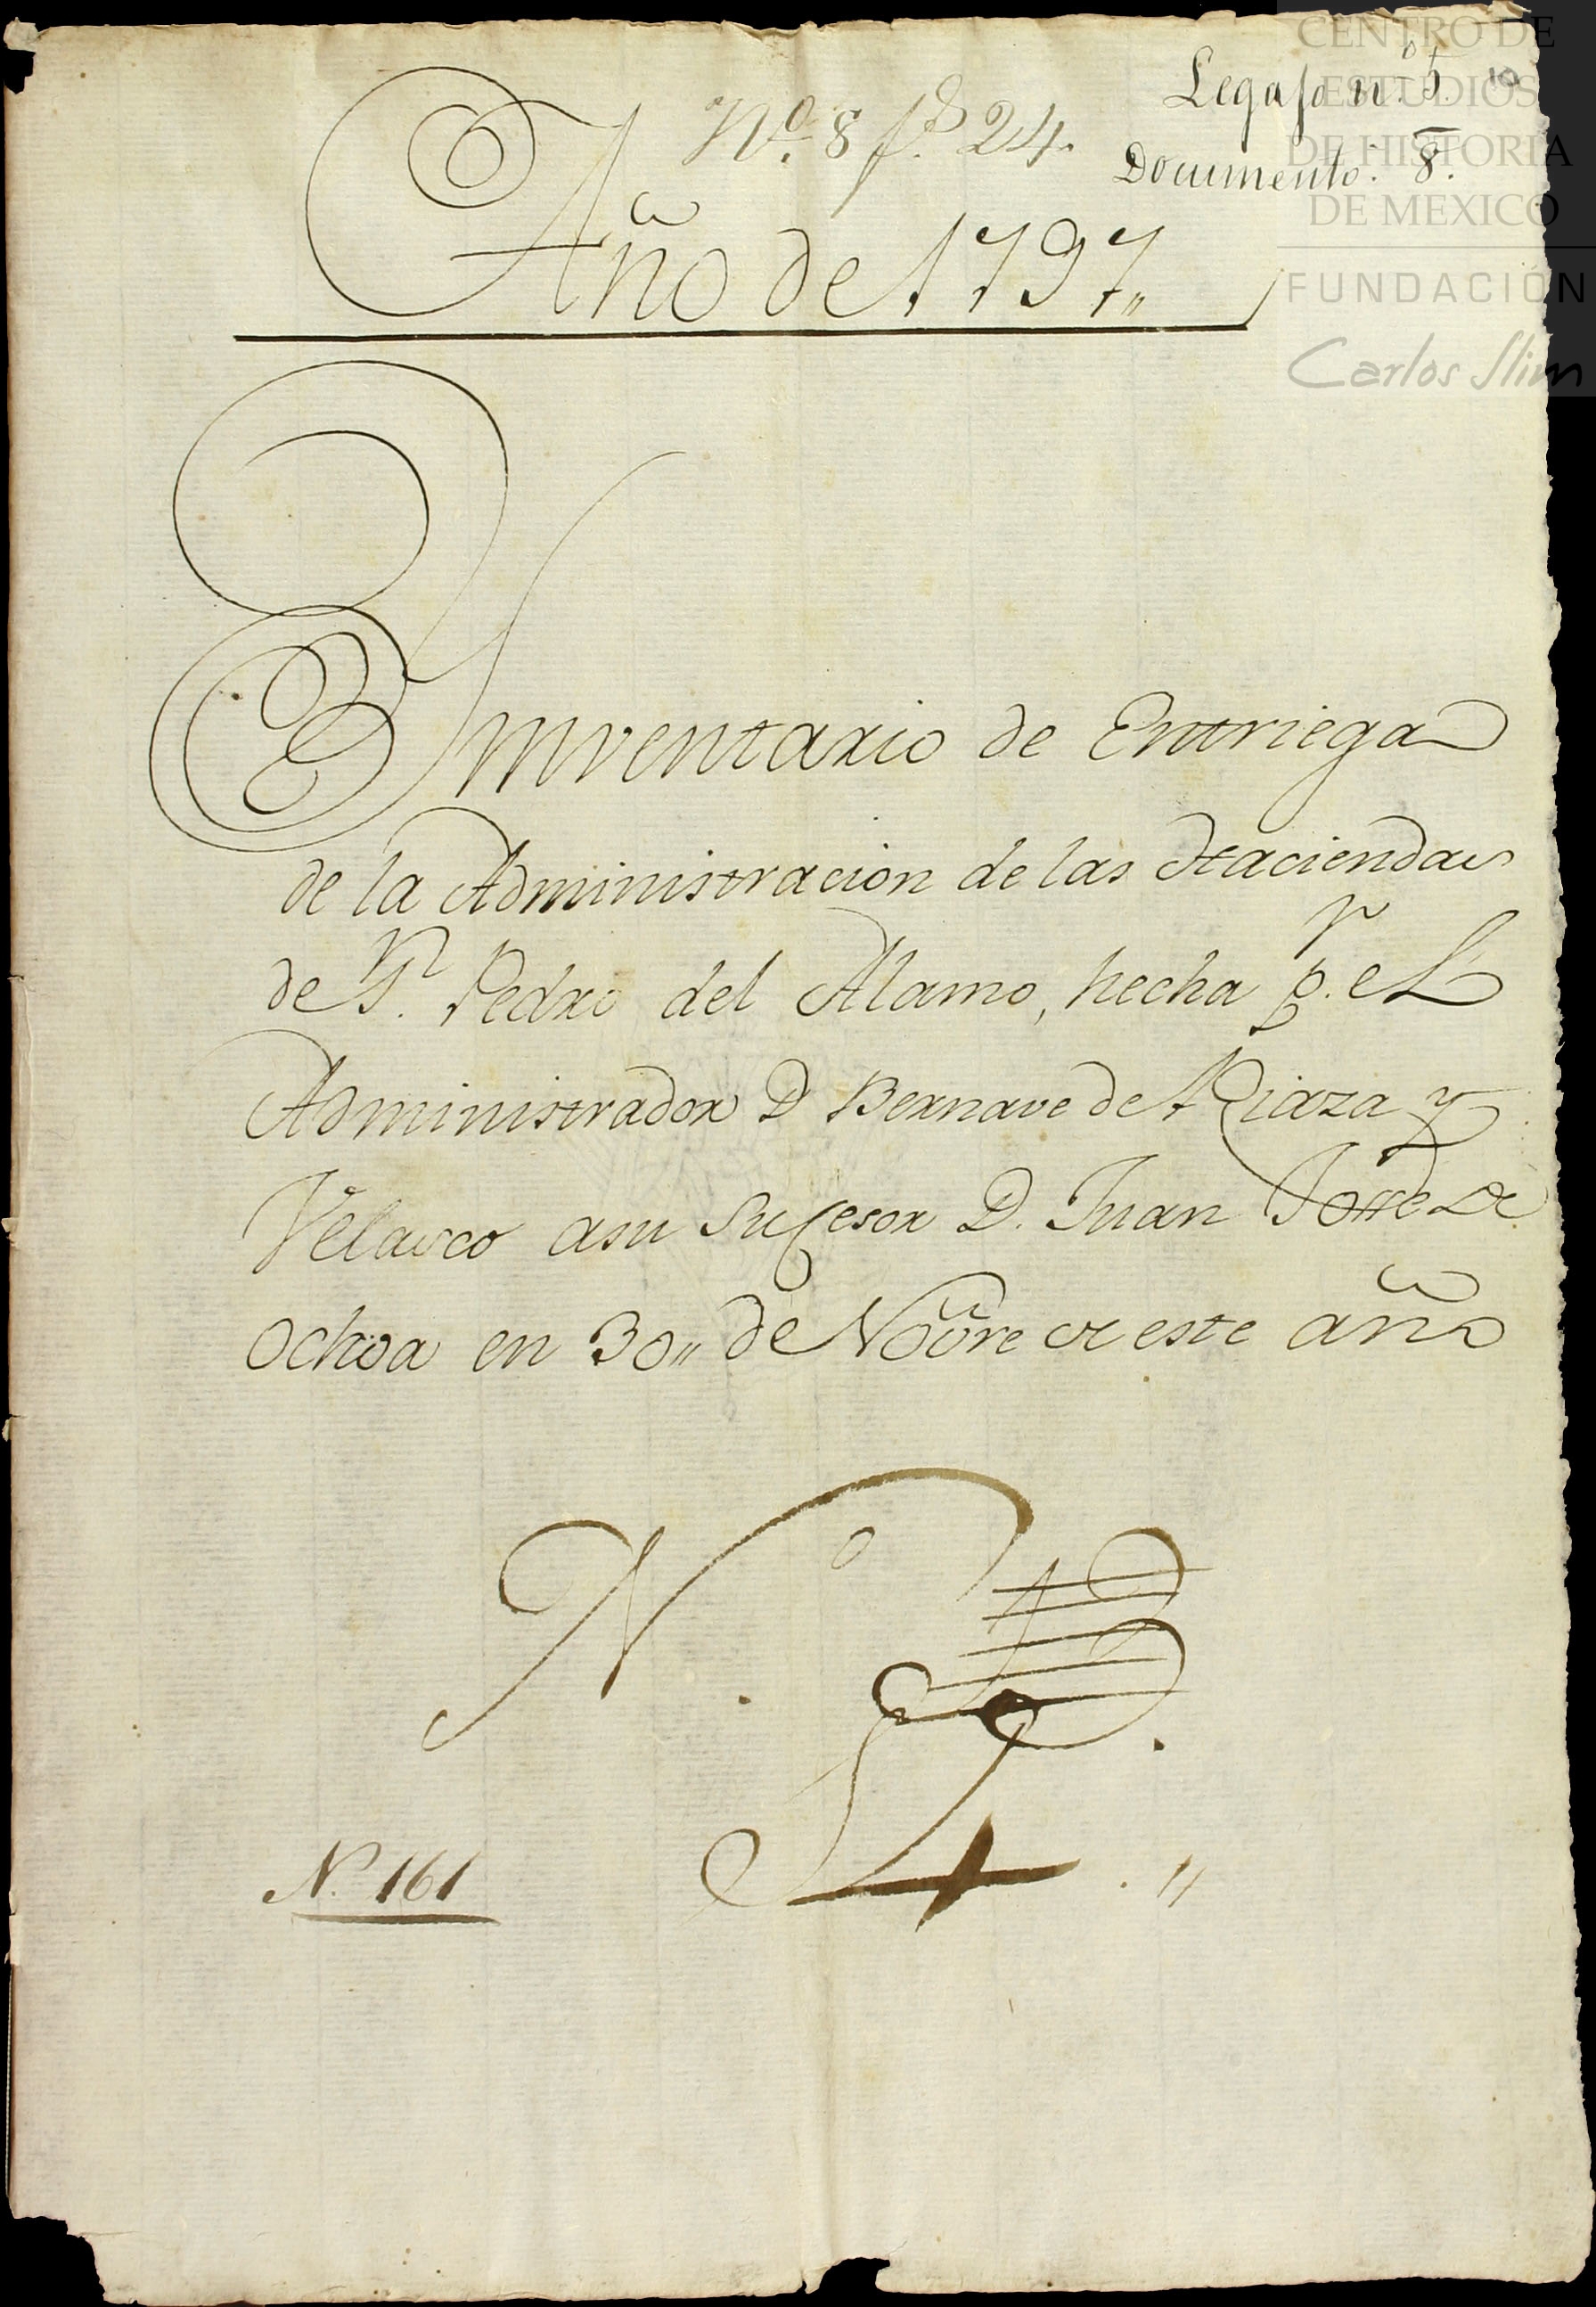 CENTRO DE
ESTUDIOS
DE HISTORIA
DE MEXICO
FUNDACIÓN
Carlos Slim
Legajo n.º 5. 10
Nº. 8 f.s 24.
Documento. 8.
Año de 1797,,
Ynventario de Entriega
de la Administracion de las Haciendas
de S.n Pedro del Alamo, hecha p.r el
Administrador D Bernave de Riaza y
Velasco asu Sucesor D. Juan Jose de
Ochoa en 30,, de Novre de este año
N.º
N. 161